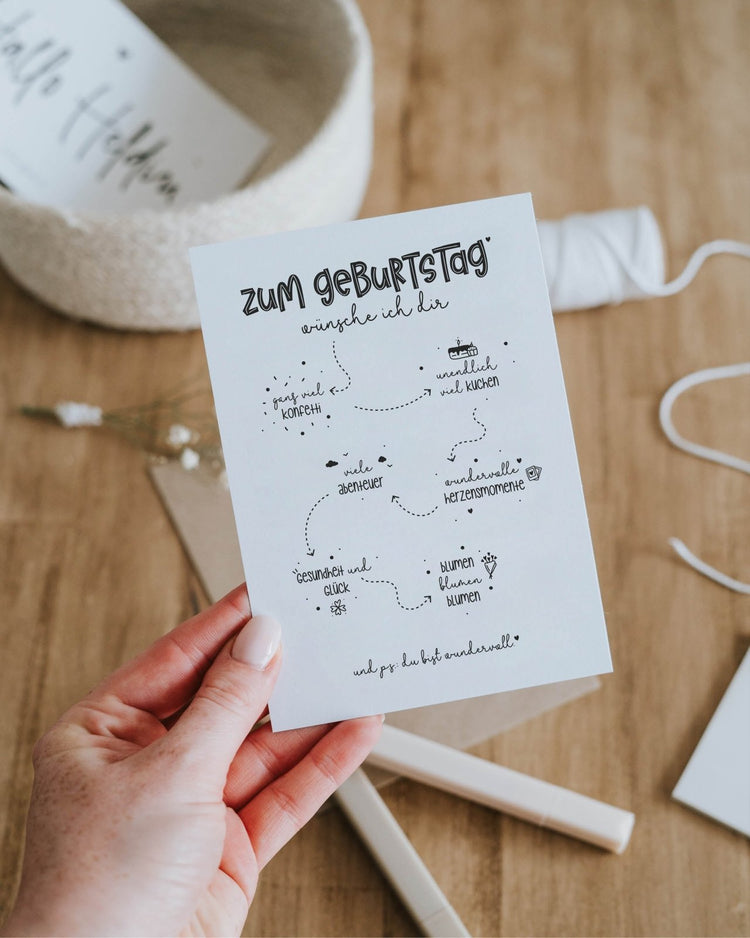 Hallo Heldin
zum Geburtstag
wünsche ich dir
ganz viel
Konfetti
unendlich
viel Kuchen
wundervolle
Herzensmomente
viele
Abenteuer
Gesundheit und
Glück
Blumen
Blumen
Blumen
und ps: du bist wundervoll